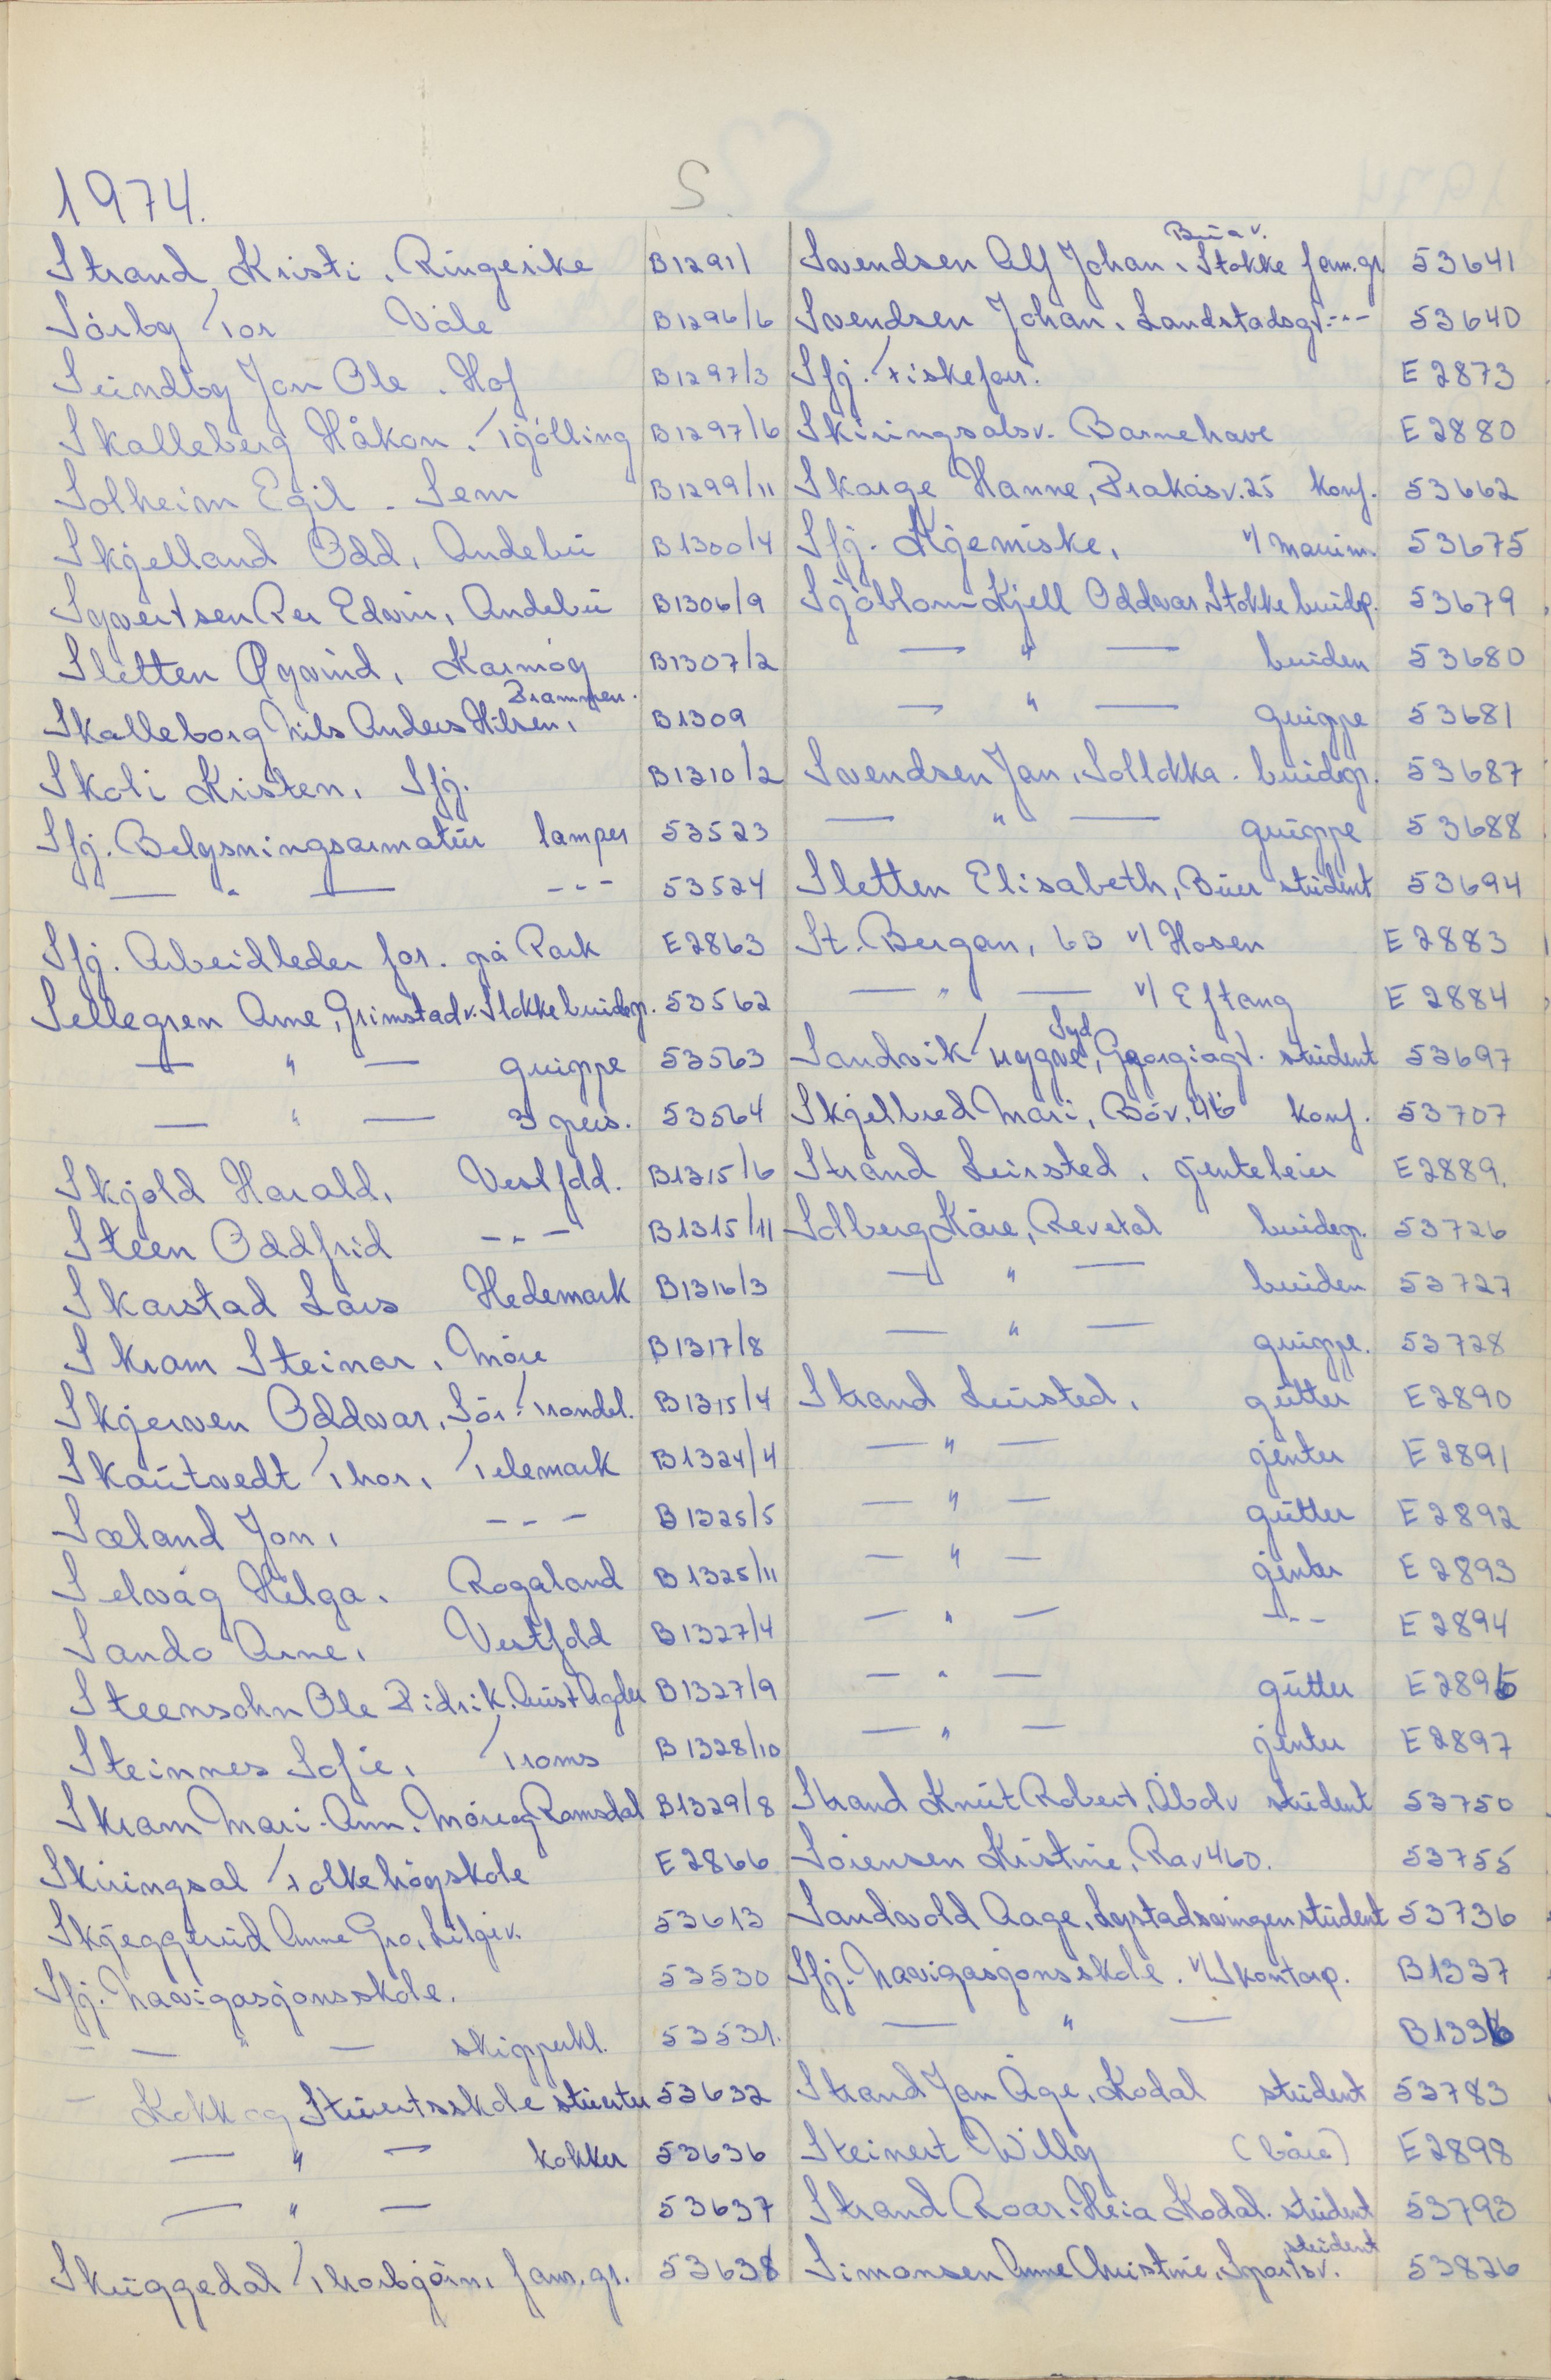 1974.
S.
Strand Kristi. Ringerike B1291/
Sörby Tor Våle B1296/6
Sundby Jan Ole. Hof B1297/3
Skalleberg Håkon. Tjölling B1297/6
Solheim Egil - Sem B1299/11
Skjelland Odd, Andebu B1300/4
Syvertsen Per Edvin, Andebu B1306/9
Sletten Øyvind, Karmöy B1307/2
Drammen.
Skalleborg Nils Anders Hilsen, B1309
Skoli Kristen, Sfj. B1310/2
Sfj. Belysningsarmatur lamper 53523
— " — --- 53524
Sfj. Arbeidleder for. på Park E2863
Sellegren Arne, Grimstadv. Stokke brudep. 53562
— " — gruppe 53563
— " — 3 pers. 53564
Skjold Harald, Vestfold. B1315/6
Steen Oddfrid -"- B1315/11
Skarstad Lars Hedemark B1316/3
Skram Steinar, Möre B1317/8
Skjerven Oddvar, Sör-Trondel. B1315/4
Skautvedt Thor, Telemark B1324/4
Sæland Jon, --- B1325/5
Selvåg Helga. Rogaland B1325/11
Sando Arne, Vestfold B1327/4
Steensohn Ole Didrik. Aust Agder B1327/9
Steinnes Sofie, Troms B1328/10
Skram Mari-Ann. Möre og Romsdal B1329/8
Skiringsal Folkehögskole E2866
Skjeggerud Anne Gro, Liljev. 53613
Sfj. Navigasjonsskole. 53530
- — " — skipperkl. 53531.
- Kokk og Stuertsskole stuerter 53632
— " — kokker 53636
— " — 53637
Skuggedal Thorbjörn, fam.gr. 53638
Bua v.
Svendsen Alf Johan, Stokke fam.gr 53641
Svendsen Johan, Landstadsgt. -"- 53640
Sfj. Fiskefor. E2873
Skiringsalsv. Barnehave E2880
Skorge Hanne, Prakåsv. 25 konf. 53662
Sfj. Kjemiske, v/ Maurin. 53675
Sjöblom Kjell Oddvar Stokke brudep. 53679
— " — bruden 53680
— " — gruppe 53681
Svendsen Jan, Solløkka. brudep. 53687
— " — gruppe 53688
Sletten Elisabeth, Buer student 53694
St. Bergan, 6 3 v/ Hosen E2883
— " — v/ Eftang E2884
Syd
Sandvik Trygve, Georgiagt. student 53697
Skjelbred Mari, Böv. 46 konf. 53707
Strand Leirsted, jenteleier E2889.
Solberg Kåre, Revetal brudep. 53726
— " — bruden 53727
— " — gruppe. 53728
Strand Leirsted, gutter E2890
— " — jenter E2891
— " — gutter E2892
— " — jenter E2893
— " — -"- E2894
— " — gutter E2896
— " — jenter E2897
Strand Knut Robert, Åbolv student 53750
Sörensen Kristine, Rav 460. 53755
Sandvold Aage, Lystadsvingen student 53736
Sfj. Navigasjonsskole. v/ Skontorp. B1337
— " — B1336
Strand Jan Åge, Kodal student 53783
Steinert Willy (båre) E2898
Strand Roar, Heia Kodal. student 53793
student
Simonsen Anne Christine, Sportsv. 53826